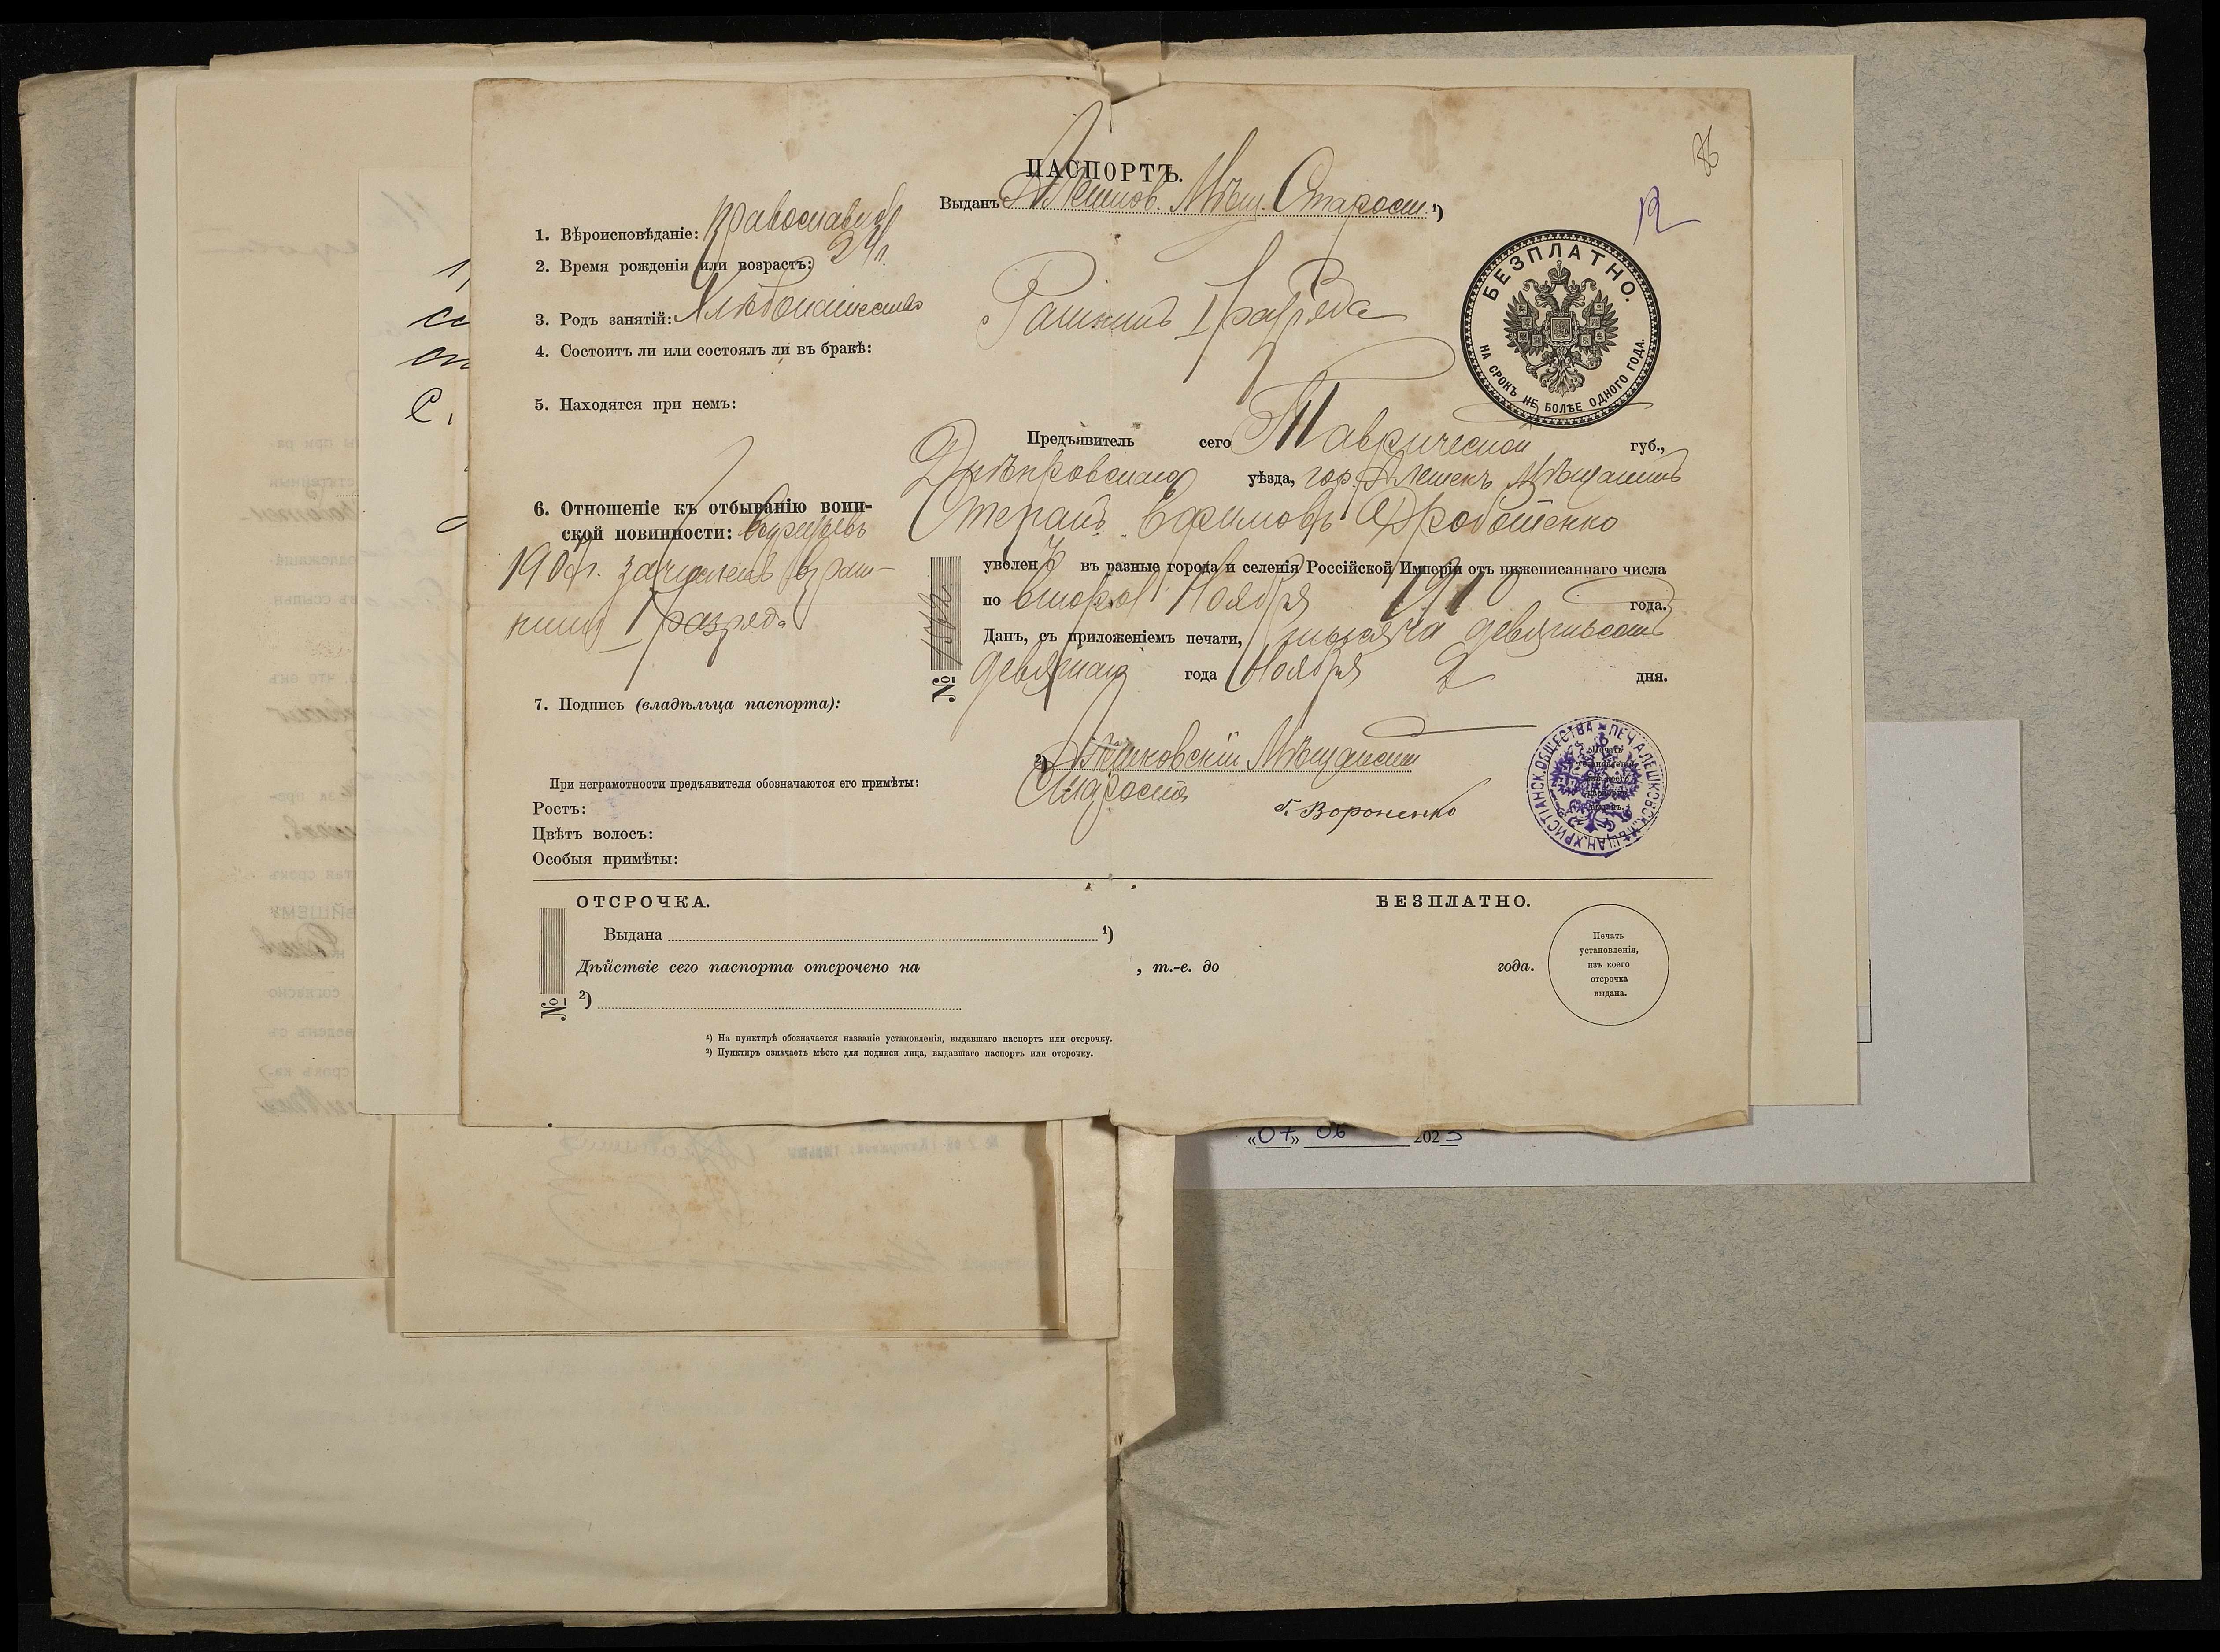 36
ПАСПОРТЪ.
Выданъ Алешков. Мѣщ. Старост. ¹)
1. Вѣроисповѣданіе: православное
2. Время рожденія или возрастъ: 24 л.
3. Родъ занятій: Хлѣбопашество
4. Состоитъ ли или состоялъ ли въ бракѣ:
5. Находятся при немъ:
6. Отношеніе къ отбыванію воин-
ской повинности:
190 г. зачисленъ въ рат-
ники I разряда
7. Подпись (владѣльца паспорта):
При неграмотности предъявителя обозначаются его примѣты:
Ростъ:
Цвѣтъ волосъ:
Особыя примѣты:
Ратникъ I разряда
БЕЗПЛАТНО.
НА СРОКЪ НЕ БОЛѢЕ ОДНОГО ГОДА.
Предъявитель сего Таврической губ.,
Днѣпровскаго уѣзда, гор. Алешекъ Мѣщанинъ
Степанъ Ефимовъ Дроботенко
уволенъ въ разные города и селенія Россійской Имперіи отъ нижеписаннаго числа
по второе Ноября 1910 года.
Данъ, съ приложеніемъ печати, тысяча девятьсотъ
девятаго года Ноября 2 дня.
№ 1512
²) Алешковскій Мѣщанскій
Староста
Вороненко
ПЕЧ. АЛЕШКОВСК. МѢЩАН. ХРИСТІАНСК. ОБЩЕСТВА
ОТСРОЧКА. БЕЗПЛАТНО.
Выдана ¹)
Дѣйствіе сего паспорта отсрочено на , т.-е. до года.
№ ²)
Печать
установленія,
изъ коего
отсрочка
выдана.
¹) На пунктирѣ обозначается названіе установленія, выдавшаго паспортъ или отсрочку.
²) Пунктиръ означаетъ мѣсто для подписи лица, выдавшаго паспортъ или отсрочку.
«07» 06 2023